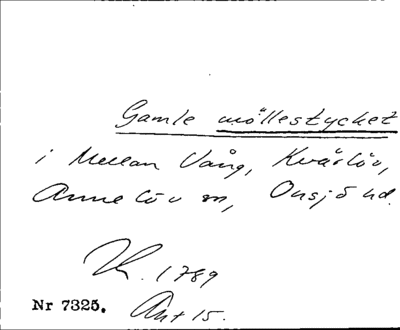 Gamle möllestycket
i Mellan Vång, Kvärlöv,
Annelöv sn, Onsjö hd.
1789
Nr 7325. Akt 15.